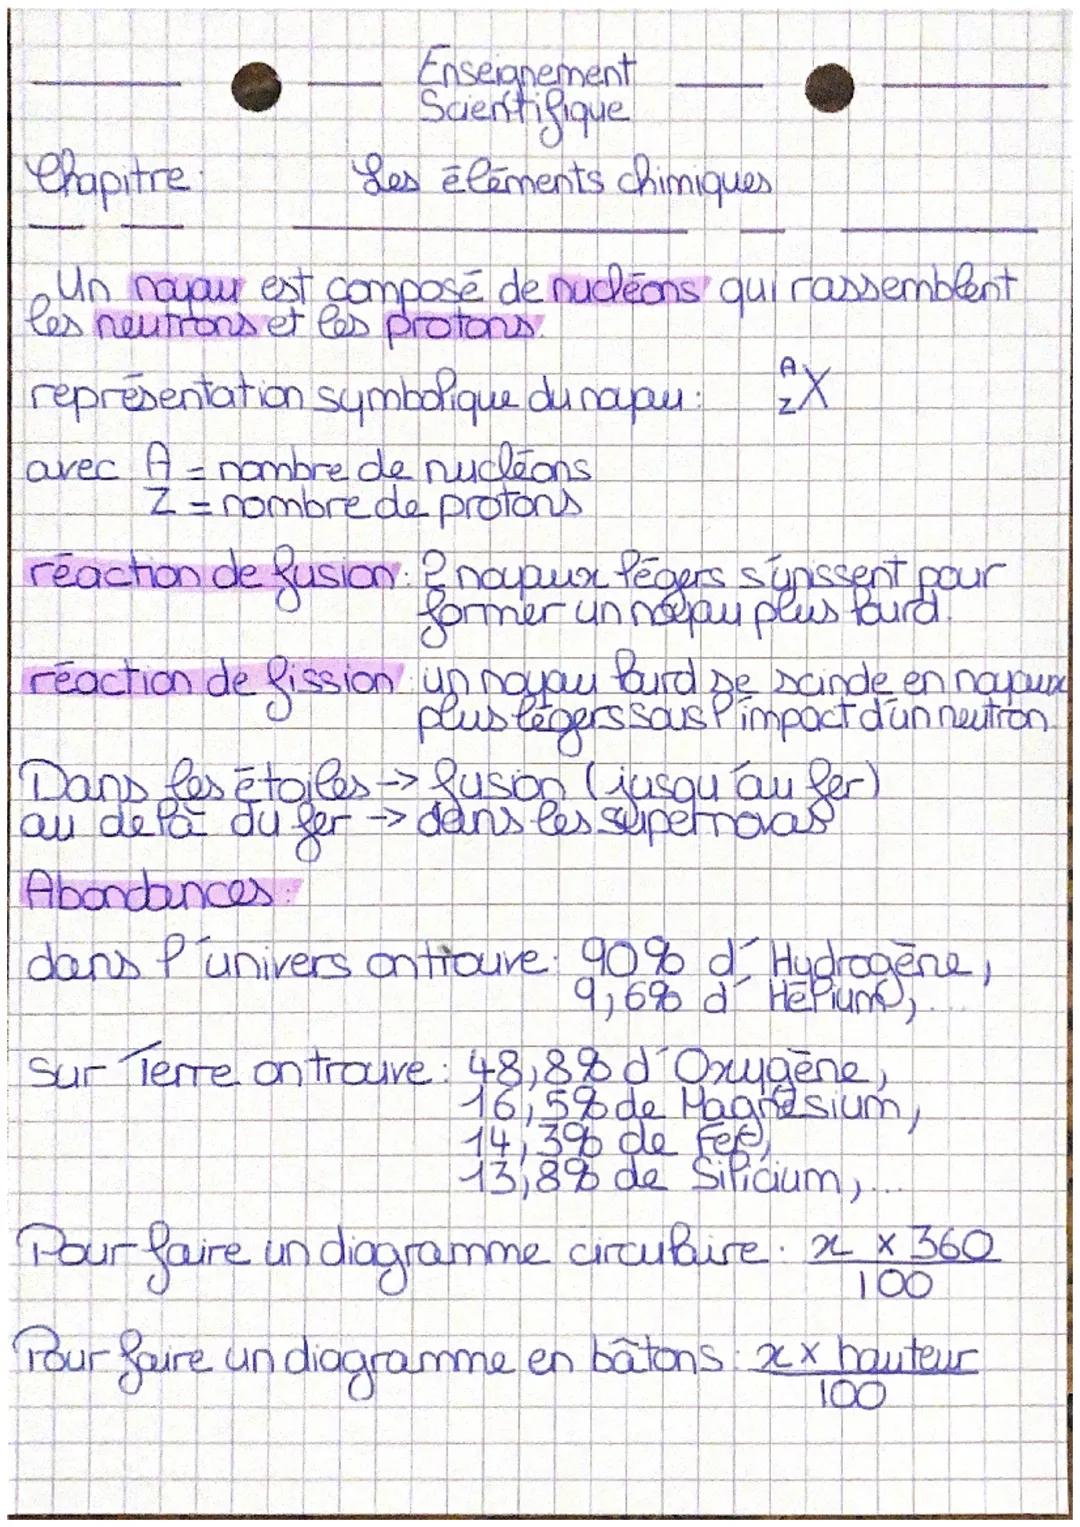 Enseignement
Scientifique
Chapitre: Les éléments chimiques
Un noyau est composé de nucléons qui rassemblent
les neutrons et les protons.
représentation symbolique du noyau : ᴬ_Z X
avec A = nombre de nucléons
Z = nombre de protons
réaction de fusion : 2 noyaux légers s'unissent pour
former un noyau plus lourd.
réaction de fission : un noyau lourd se scinde en noyaux
plus légers sous l'impact d'un neutron.
Dans les étoiles → fusion (jusqu'au fer)
au delà du fer → dans les supernovas
Abondances :
dans l'univers on trouve : 90% d'Hydrogène,
9,6% d'Hélium, ...
Sur Terre on trouve : 48,8% d'Oxygène,
16,5% de Magnésium,
14,3% de Fer,
13,8% de Silicium, ...
Pour faire un diagramme circulaire : x × 360
100
Pour faire un diagramme en bâtons : x × hauteur
100